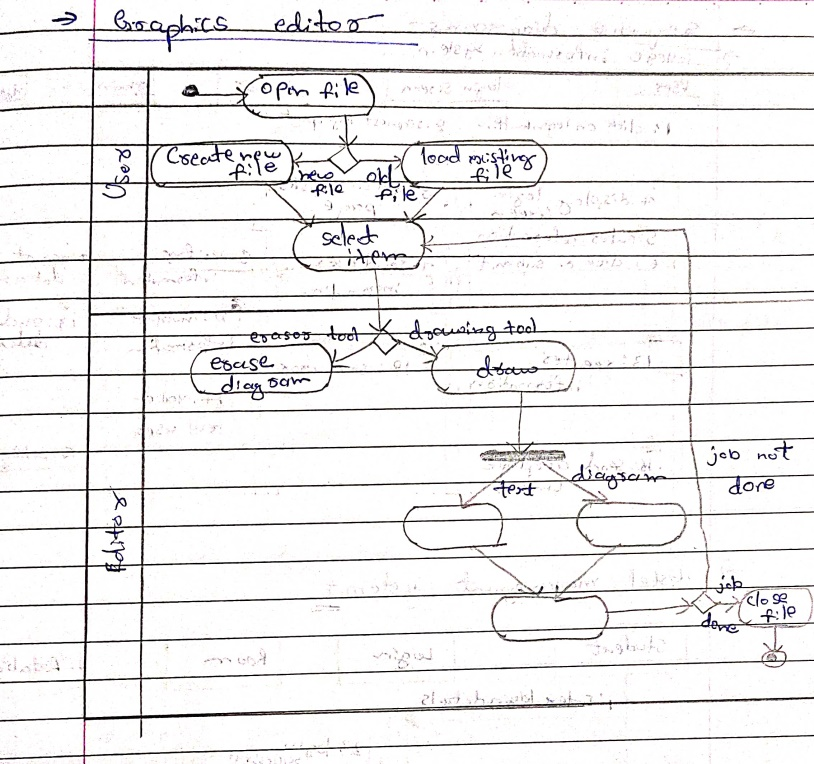 → Graphics editor
User
open file
Create new
file
new
file
old
file
load existing
file
select
item
Editor
eraser tool
drawing tool
erase
diagram
draw
text
diagram
job not
done
job
done
close
file